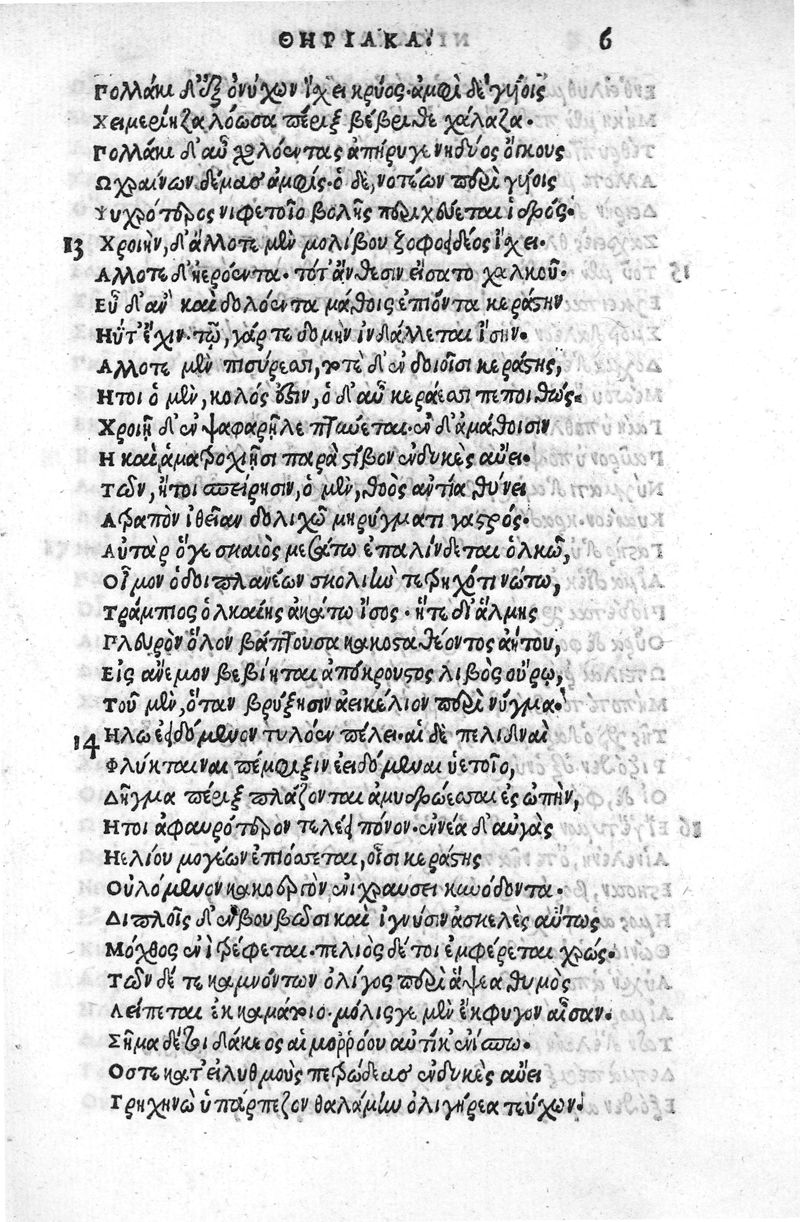 ΘΗΡΙΑΚΑ. 6
Πολλάκι δ' ἐξ ὀνύχων ἴχει κρύος· ἀμφὶ δὲ γύιοις
Χειμερίη ζαλόωσα πέριξ βέβριθε χάλαζα.
Πολλάκι δ' αὖ χλόεντας ἀπήρυγε νηδύος ὄγκους
Ωχραίνων δέμας ἀμφίς· ὁ δὲ, νοτέων περὶ γύιοις
Ψυχρότερος νιφετοῖο βολῆς περιχεύεται ἱδρώς.
13 Χροιὴν, δ' ἄλλοτε μὲν μολίβου ζοφοειδέος ἴχει.
Αλλοτε δ' ἠερόεντα. τότ' ἄνθεσιν εἴσατο χαλκοῦ.
Εὖ δ' ἂν καὶ δολόεντα μάθοις ἐπιόντα κεράστην
Ηΰτ' ἔχιν· τῷ, γάρτε δομὴν ἰνδάλλεται ἴσην.
Αλλοτε μὲν πισύρεσσι, ὁτὲ δ' ἐν δοιοῖσι κεράστης,
Ητοι ὁ μὲν, κολός ἐστιν, ὁ δ' αὖ κεράεσσι πεποιθώς.
Χροιῇ δ' ἐν ψαφαρῇ λεπταύεται. ἐν δ' ἀμάθοισιν
Η καὶ ἁματροχιῇσι παρὰ στίβον ἐνδυκὲς αὔει.
Τῶν, ἤτοι σπείρησιν, ὁ μὲν, θοὸς αντία θύνει
Ατραπὸν ἰθεῖαν δολιχῷ μηρύγματι γαστρός.
Αὐτὰρ ὅγε σκαιὸς μεσάτῳ ἐπαλίνδεται ὁλκῷ,
Οἶμον ὁδοιπλανέων σκολιὴν τετρηχότι νώτῳ,
Τράμπιος ὁλκαίης ἀκάτῳ ἴσος. ἥτε δι' ἅλμης
Πλευρὸν ὅλον βάπτουσα κακοσταθέοντος ἀήτου,
Εἰς ἄνεμον βεβίηται ἀπόκρουστος λιβὸς οὔρῳ,
Τοῦ μὲν, ὅταν βρύξησιν ἀεικέλιον περὶ νύγμα.
14 Ηλῳ εἰδόμενον τυλόεν πέλει. αἱ δὲ πελιδναὶ
Φλύκταιναι πέμφιξιν ἐειδόμεναι ὑετοῖο,
Δῆγμα πέριξ πλάζονται ἀμυδρήεσσαι ἐς ὠπὴν,
Ητοι ἀφαυρότερον τελέει πόνον. ἐννέα δ' αὐγὰς
Ηελίου μογέων ἐπιόσσεται, οἷσι κεράστης
Οὐλόμενον κακοεργὸν ἐνιχραύσει κυνόδοντα.
Διπλοῖς δ' ἐν βουβῶσι καὶ ἰγνύσιν ἀσκελὲς αὔτως
Μόχθος ἐνιτρέφεται. πελιὸς δέ τοι ἐμφέρεται χρώς.
Τῶν δέ τε καμνόντων ὀλίγος περὶ ἅψεα θυμὸς
Λείπεται ἐκ καμάτοιο. μόλις γε μὲν ἔκφυγον αἶσαν.
Σῆμα δέ τοι δάκεος αἱμορρόου αὐτίκ' ἐνίσπω.
Οστε κατ' εἰλυθμοὺς πετρώδεας ἐνδυκὲς αὔει
Τρηχηνῶ ὑπάρπεζον θαλάμην ὀλιγήρεα τεύχων.